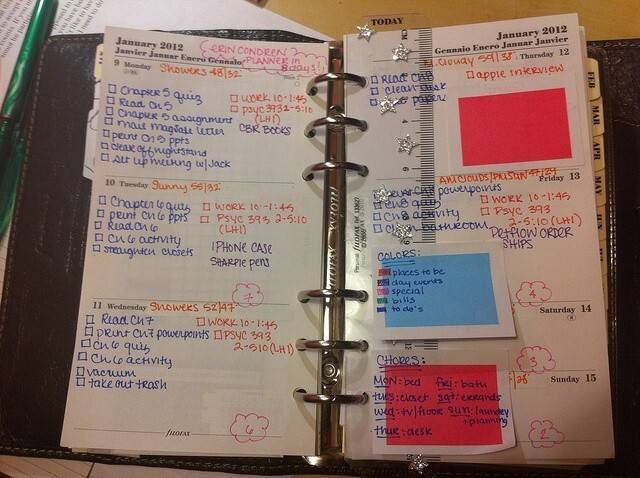 January 2012
Janvier Januar Enero Gennaio
ERIN CONDREN
PLANNER IN
8 days!!
9 Monday Showers 48/32
Chapter 5 quiz
Read Ch 5
Chapter 5 assignment
print Ch 5 ppts
clear off nightstand
set up meeting w/Jack
WORK 10-1:45
PSYC 393 2-5:10
(LH1)
CBR BOOKS
10 Tuesday Sunny 55/32
Chapter 6 quiz
print Ch 6 ppts
Read Ch 6
Ch 6 activity
straighten closets
WORK 10-1:45
PSYC 393 2-5:10
(LH1)
IPHONE CASE
SHARPIE PENS
7
11 Wednesday Showers 52/47
Read Ch 7
print Ch 7 powerpoints
Ch 6 quiz
Ch 6 activity
vacuum
take out trash
WORK 10-1:45
PSYC 393
2-5:10 (LH1)
filofax
6
TODAY
January 2012
Gennaio Enero Januar Janvier
Thursday 12
Read Ch 8
clean desk
paper
apple interview
Friday 13
powerpoints
Ch 8 quiz
Ch 8 activity
bathroom
WORK 10-1:45
PSYC 393
2-5:10 (LH1)
PETFLOW ORDER
SHIPS
4
COLORS:
places to be
day events
special
bills
to do's
Saturday 14
3
CHORES:
MON: bed
tues: closet
wed: tv/floor
thur: desk
fri: bath
sat: errands
sun: laundry
+ planning
Sunday 15
2
FEB
MAR
APR
MAY